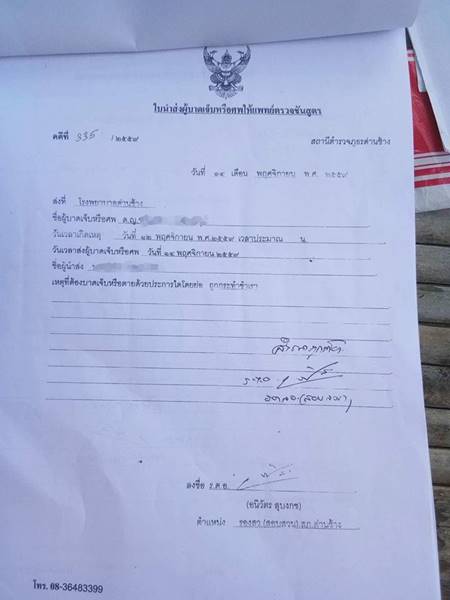 ใบนำส่งผู้บาดเจ็บหรือศพให้แพทย์ตรวจชันสูตร
คดีที่ 335 /๒๕๕๙ สถานีตำรวจภูธรด่านช้าง
วันที่ ๑๔ เดือน พฤศจิกายน พ.ศ. ๒๕๕๙
ส่งที่ โรงพยาบาลด่านช้าง
ชื่อผู้บาดเจ็บหรือศพ ด.ญ.
วันเวลาเกิดเหตุ วันที่ ๑๒ พฤศจิกายน พ.ศ.๒๕๕๙ เวลาประมาณ น.
วันเวลาส่งผู้บาดเจ็บหรือศพ วันที่ ๑๔ พฤศจิกายน ๒๕๕๙
ชื่อผู้นำส่ง
เหตุที่ต้องบาดเจ็บหรือตายด้วยประการใดโดยย่อ ถูกกระทำชำเรา
สำเนาถูกต้อง
ลงชื่อ ร.ต.อ.
(อนิวัตร สุบงกช)
ตำแหน่ง รองสว.(สอบสวน)สภ.ด่านช้าง
โทร. 08-36483399